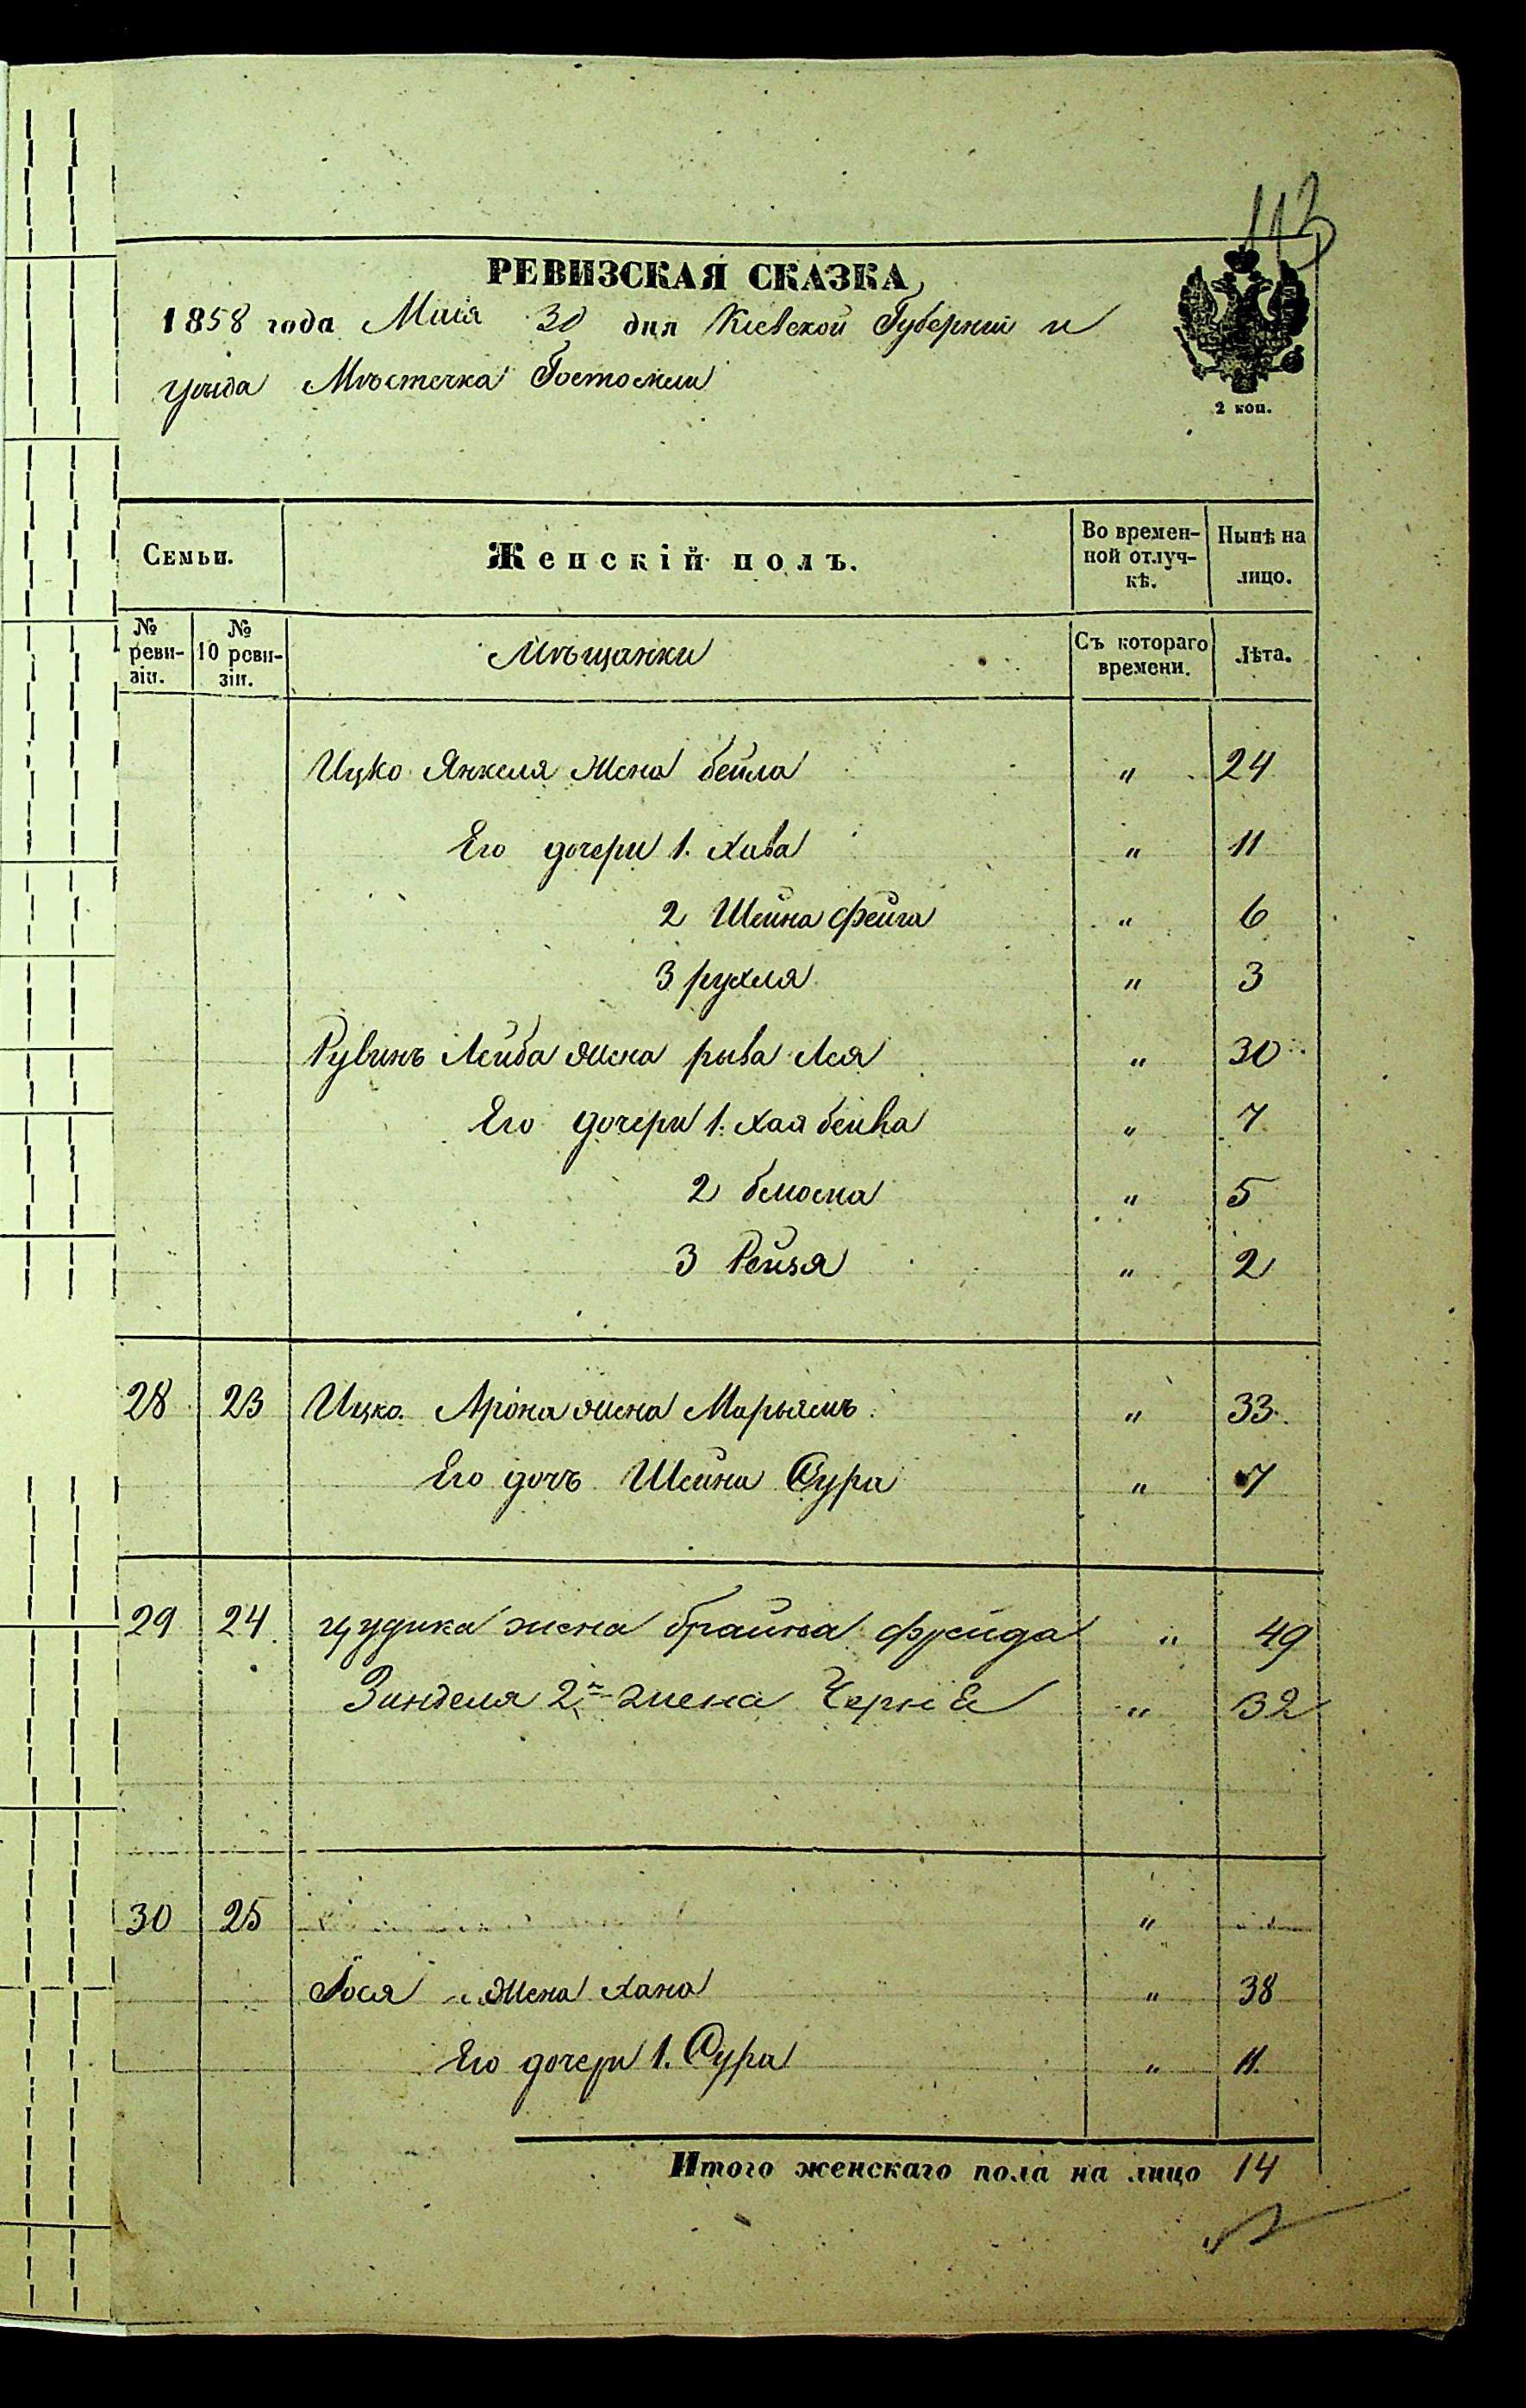 113
РЕВИЗСКАЯ СКАЗКА,
1858 года Маія 30 дня Кіевской Губерніи и
уѣзда Мѣстечка Гостомля
2 коп.
Семьи. Женскій полъ. Во времен-ной отлуч-кѣ. Нынѣ на лицо.
№ реви-зіи. № 10 реви-зіи. Мѣщанки Съ котораго времени. Лѣта.
Ицко Янкеля жена бейла " 24
Его дочери 1. Хава " 11
2 Шейна фейга " 6
3 рухля " 3
Рувинъ Лейба жена рыва Лея " 30
Его дочери 1. хая бейла " 7
2 блюма " 5
3 Рейзя " 2
28 23 Ицко Арона жена Марьямъ " 33
Его дочь Шейна Сура " 7
29 24 жена брайна фрейда " 49
Зинделя 2я жена Черня " 32
30 25 "
жена Хана " 38
Его дочери 1. Сура " 11.
Итого женскаго пола на лицо 14